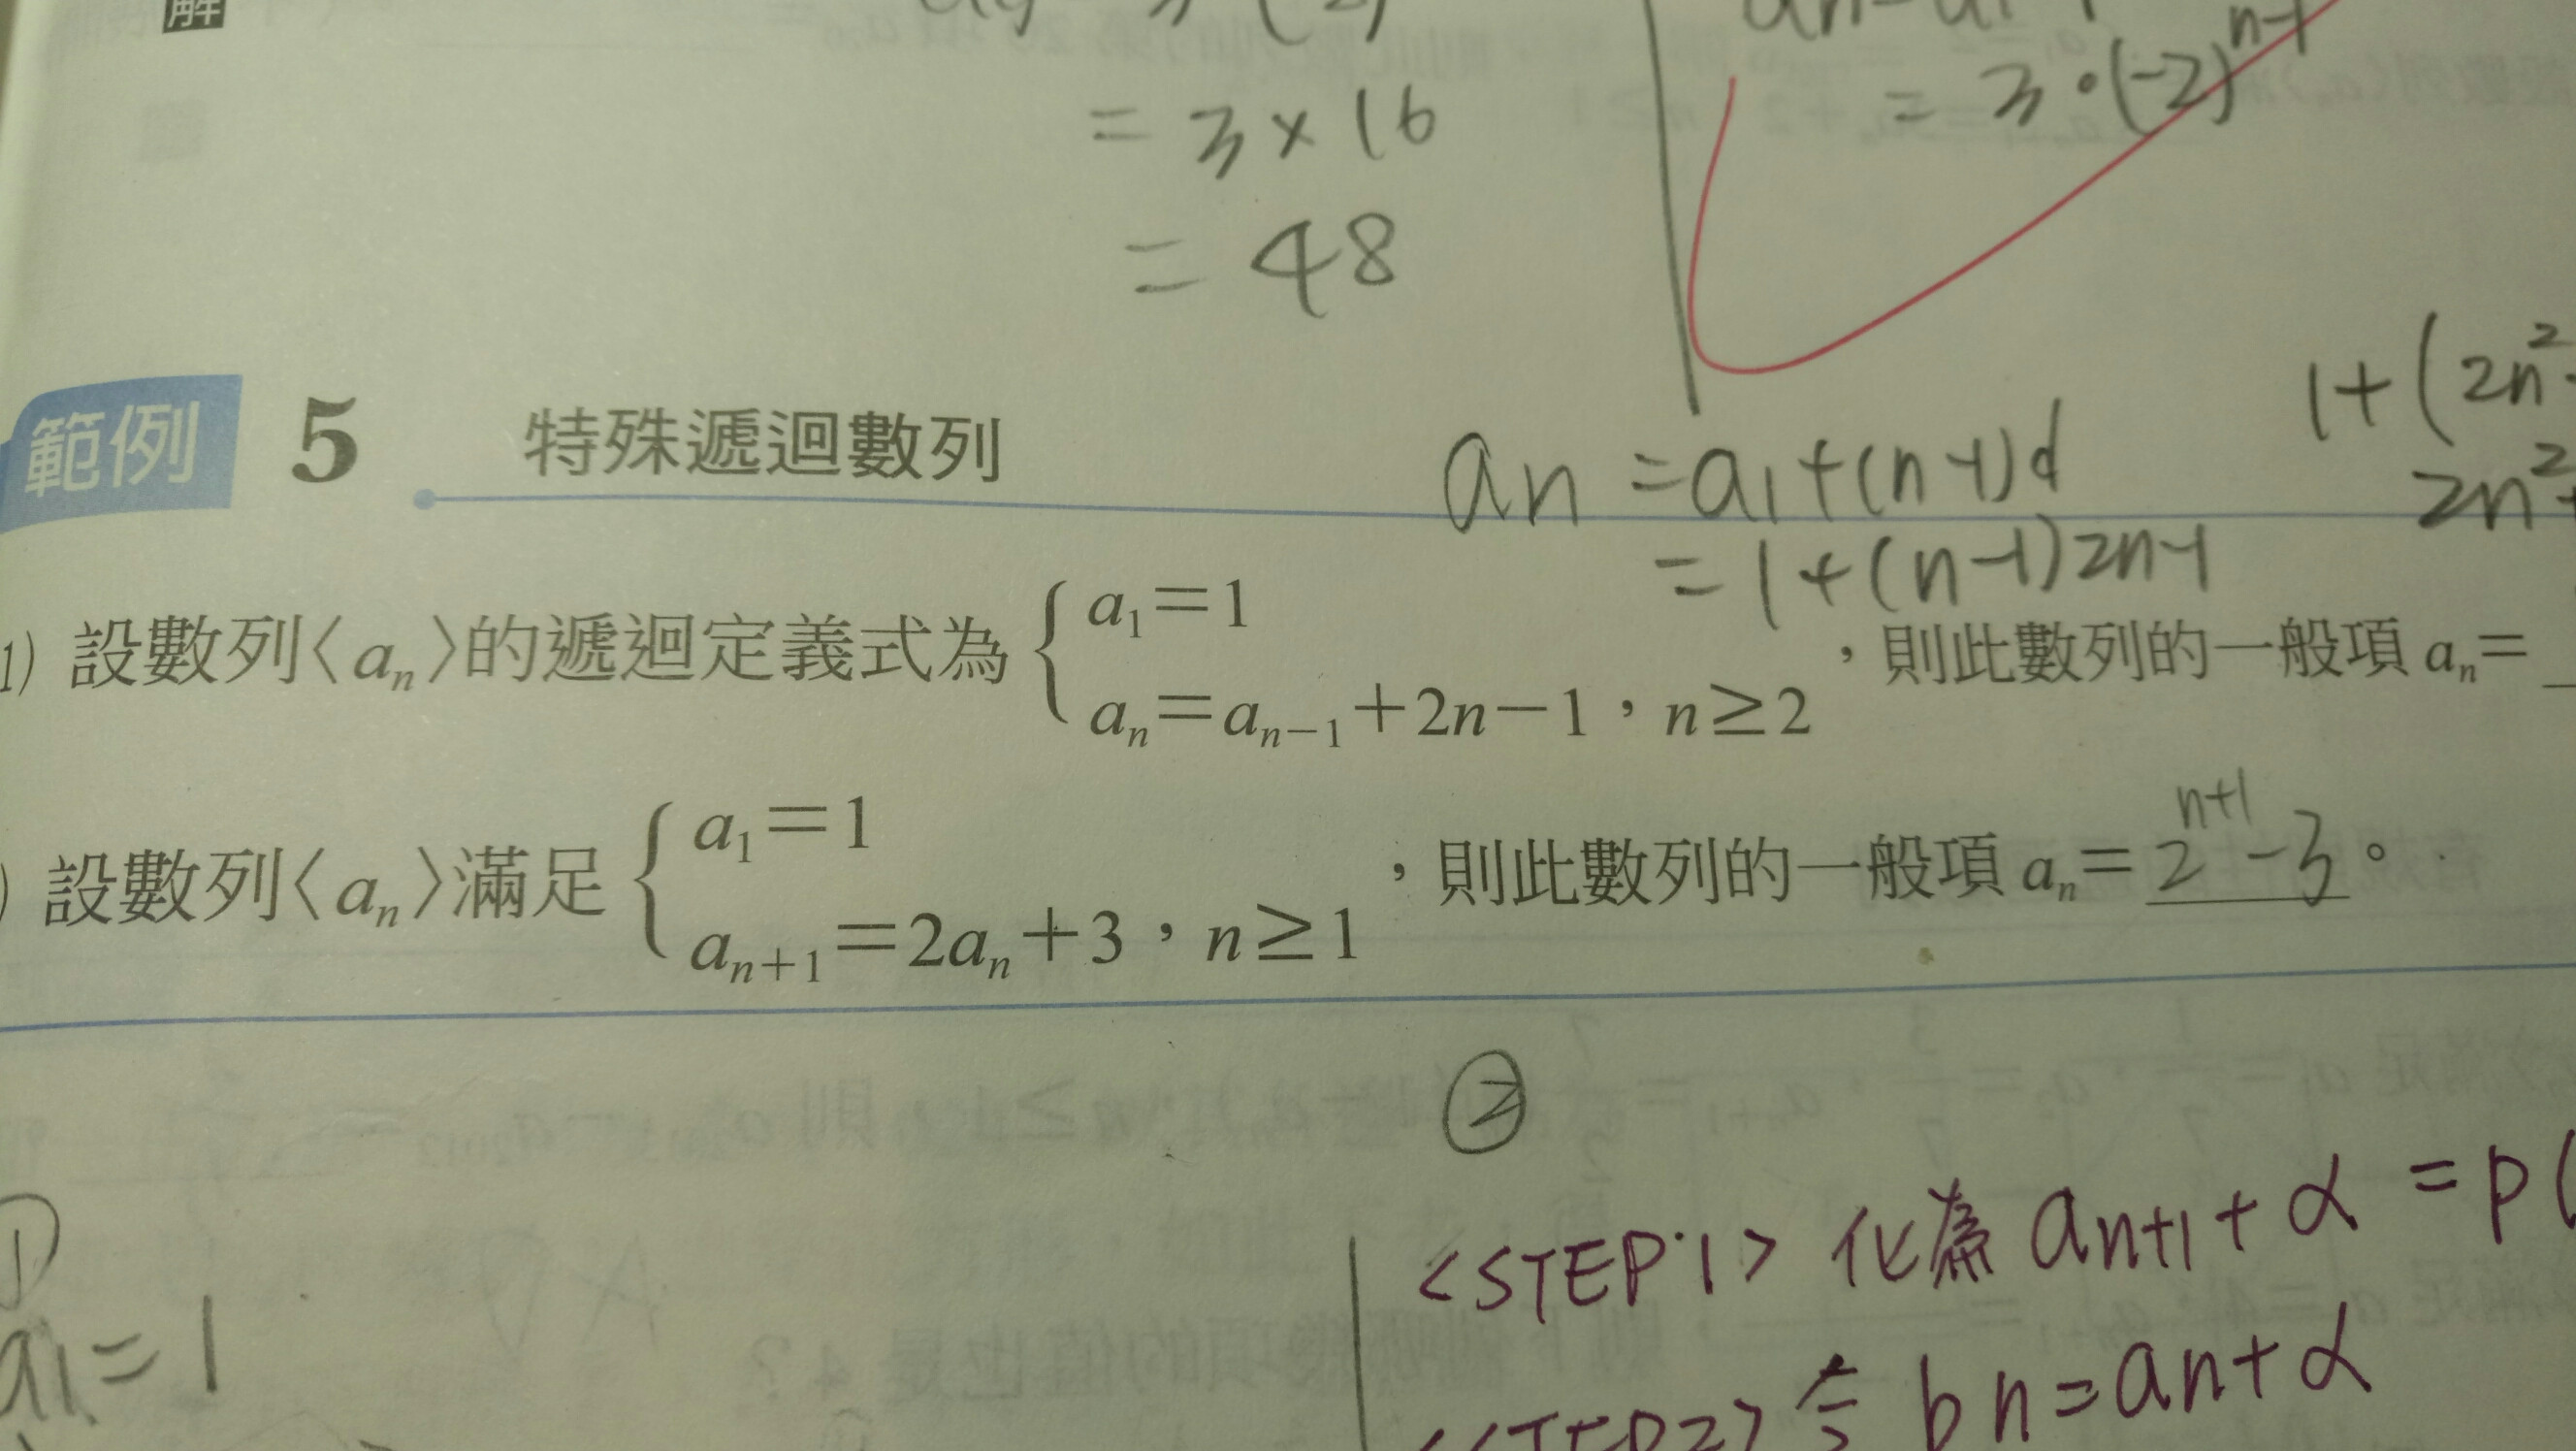 解
= 3 × 16
= 48
= 3 · (-2)^{n-1}
範例 5 特殊遞迴數列
an = a1 + (n-1)d
= 1 + (n-1) 2n-1
1 + (2n²
2n²
1) 設數列〈a_n〉的遞迴定義式為 { a_1=1
a_n=a_{n-1}+2n-1,n≥2 ,則此數列的一般項 a_n=
) 設數列〈a_n〉滿足 { a_1=1
a_{n+1}=2a_n+3,n≥1 ,則此數列的一般項 a_n= 2^{n+1}-3。
②
①
a1 = 1
<STEP 1> 化為 an+1 + α = p(
<STEP2> 令 bn = an + α